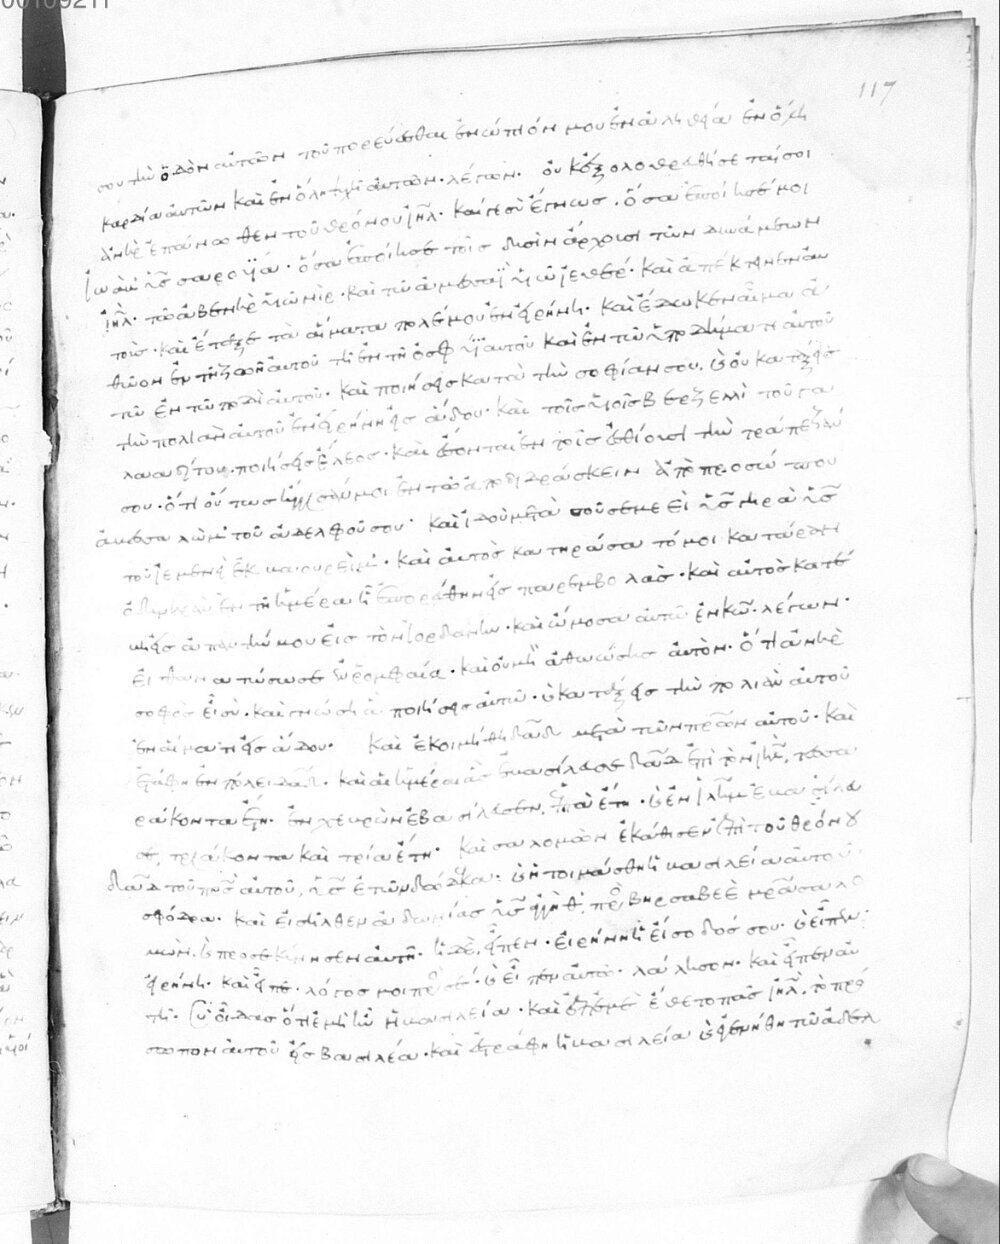 00109211
117
σου τὴν ὁδὸν αὐτῶν τοῦ πορεύεσθαι ἐνώπιόν μου ἐν ἀληθεία ἐν ὅλη
καρδία αὐτῶν καὶ ἐν ὅλη ψυχῆ αὐτῶν· λέγων· οὐκ ἐξολοθρευθήσεταί σοι
ἀνὴρ ἐπάνωθεν τοῦ θρόνου ἰῆλ· καί γε σὺ ἔγνως· ὅσα ἐποίησέ μοι
ἰωὰβ υἱὸς σαρουΐα· ὅσα ἐποίησε τοῖς δυσὶν ἄρχουσι τῶν δυνάμεων
ἰῆλ· τῶ ἀβενὴρ υἱῶ νὴρ· καὶ τῶ ἀμεσσαῒ υἱῶ ἰεθέρ· καὶ ἀπέκτεινεν αὐ
τούς· καὶ ἔταξε τὰ αἵματα πολέμου ἐν εἰρήνη· καὶ ἔδωκεν αἷμα ἀ
θῶον ἐν τῆ ζώνη αὐτοῦ τῆ ἐν τῆ ὀσφύϊ αὐτοῦ καὶ ἐν τῶ ὑποδήματι αὐτοῦ
τῶ ἐν τῶ ποδὶ αὐτοῦ· καὶ ποιήσεις κατὰ τὴν σοφίαν σου, καὶ οὐ κατάξεις
τὴν πολιὰν αὐτοῦ ἐν εἰρήνη εἰς ἅδου· καὶ τοῖς υἱοῖς βερζελλὶ τοῦ γα
λααδίτου· ποιήσεις ἔλεος· καὶ ἔσονται ἐν τοῖς ἐσθίουσι τὴν τράπεζάν
σου· ὅτι οὕτως ἤγγισάν μοι ἐν τῶ ἀποδιδράσκειν ἀπὸ προσώπου
ἀβεσαλὼμ τοῦ ἀδελφοῦ σου· καὶ ἰδοὺ μετὰ σοῦ σεμεεὶ υἱὸς γηρὰ υἱὸς
τοῦ ἰεμενεὶ ἐκ βαουρείμ· καὶ αὐτὸς κατηράσατό μοι κατάραν
ὀδυνηρὰν ἐν τῆ ἡμέρα ἧ ἐπορεύθην εἰς παρεμβολάς· καὶ αὐτὸς κατέ
βη εἰς ἀπαντήν μου εἰς τὸν ἰορδάνην· καὶ ὤμοσα αὐτῶ ἐν κῶ λέγων·
εἰ θανατώσω σε ἐν ρομφαία· καὶ οὐ μὴ ἀθωώσης αὐτόν· ὅτι ἀνὴρ
σοφὸς εἶ σύ· καὶ γνώση ἃ ποιήσεις αὐτῶ· καὶ κατάξεις τὴν πολιὰν αὐτοῦ
ἐν αἵματι εἰς ἅδου· καὶ ἐκοιμήθη δαδ μετὰ τῶν πρῶν αὐτοῦ· καὶ
ἐτάφη ἐν πόλει δαδ· καὶ αἱ ἡμέραι ἃς ἐβασίλευσε δαδ ἐπὶ τὸν ἰῆλ, τεσσα
ράκοντα ἔτη· ἐν χεβρὼν ἐβασίλευσεν, ἑπτὰ ἔτη· καὶ ἐν ἱλημ ἐβασίλευ
σε, τριάκοντα καὶ τρία ἔτη· καὶ σαλομὼν ἐκάθισεν ἐπὶ τοῦ θρόνου
δαδ τοῦ πρς αὐτοῦ, υἱὸς ἐτῶν δώδεκα· καὶ ἡτοιμάσθη ἡ βασιλεία αὐτοῦ
σφόδρα· καὶ εἰσῆλθεν ἀδωνίας υἱὸς ἀγγὴθ, πρὸς βηρσαβεὲ μρα σαλο
μὼν· καὶ προσεκύνησεν αὐτῆ· ἡ δὲ, εἶπεν· εἰρήνη ἡ εἴσοδός σου· καὶ εἶπεν·
εἰρήνη· καὶ εἶπε· λόγος μοι πρὸς σέ· καὶ εἶπεν αὐτῶ· λάλησον· καὶ εἶπεν αὐ
τῆ· σὺ οἶδας ὅτι ἐμὴ ἦν ἡ βασιλεία· καὶ ἐπ' ἐμὲ ἔθετο πᾶς ἰῆλ, τὸ πρό
σωπον αὐτοῦ εἰς βασιλέα· καὶ ἐστράφη ἡ βασιλεία καὶ ἐγενήθη τῶ ἀδελ